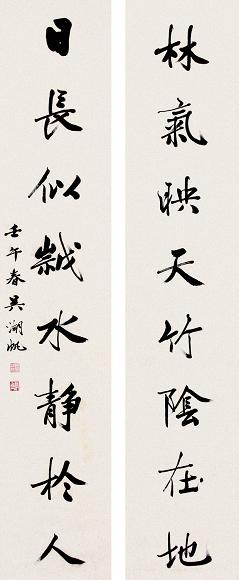 林氣映天竹陰在地
日長似歲水靜於人
壬午春吳湖帆